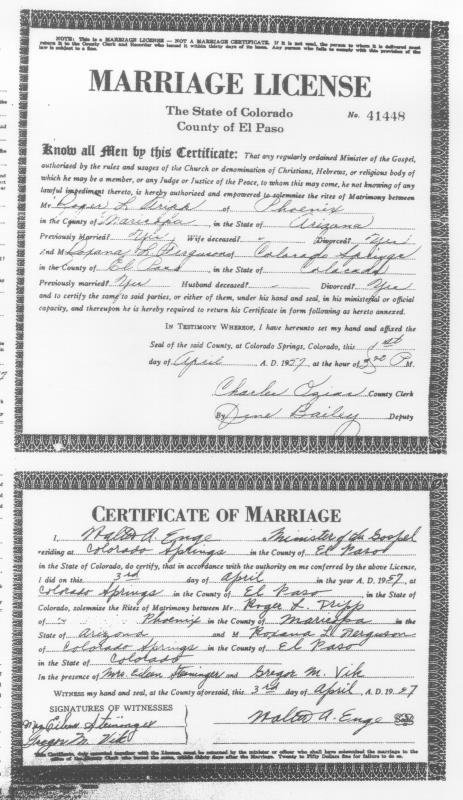 NOTE: This is a MARRIAGE LICENSE — NOT A MARRIAGE CERTIFICATE. If it is not used, the person to whom it is delivered must
return it to the County Clerk and Recorder who issued it within thirty days of its issue. Any person who fails to comply with this provision of the
law is subject to a fine.
MARRIAGE LICENSE
The State of Colorado
County of El Paso
No. 41448
Know all Men by this Certificate: That any regularly ordained Minister of the Gospel,
authorized by the rules and usages of the Church or denomination of Christians, Hebrews, or religious body of
which he may be a member, or any Judge or Justice of the Peace, to whom this may come, he not knowing of any
lawful impediment thereto, is hereby authorized and empowered to solemnize the rites of Matrimony between
Mr. Roger L. Tripp of Phoenix
in the County of Maricopa, in the State of Arizona
Previously Married? Yes Wife deceased? - Divorced? Yes
and M Roxana L. Ferguson of Colorado Springs
in the County of El Paso, in the State of Colorado
Previously married? Yes Husband deceased? - Divorced? Yes
and to certify the same to said parties, or either of them, under his hand and seal, in his ministerial or official
capacity, and thereupon he is hereby required to return his Certificate in form following as hereto annexed.
IN TESTIMONY WHEREOF, I have hereunto set my hand and affixed the
Seal of the said County, at Colorado Springs, Colorado, this 1st
day of April A. D. 1957, at the hour of 3:00 P M.
Charles Ozias County Clerk
By June Bailey Deputy
CERTIFICATE OF MARRIAGE
I, Walter A. Enge Minister of the Gospel
residing at Colorado Springs in the County of El Paso
in the State of Colorado, do certify, that in accordance with the authority on me conferred by the above License,
I did on this 3rd day of April in the year A. D. 1957, at
Colorado Springs in the County of El Paso in the State of
Colorado, solemnize the Rites of Matrimony between Mr. Roger L. Tripp
of Phoenix in the County of Maricopa in the
State of Arizona and M Roxana L. Ferguson
of Colorado Springs in the County of El Paso
in the State of Colorado
In the presence of Mrs. Eileen Steininger and Gregor M. Vik
WITNESS my hand and seal, at the County aforesaid, this 3rd day of April, A. D. 1957
SIGNATURES OF WITNESSES
Mrs Eileen Steininger
Gregor M. Vik
Walter A. Enge
This Certificate, duly executed together with the License, must be returned by the minister or officer who shall have solemnized the marriage to the
office of the County Clerk who issued the same, within thirty days after the Marriage. Twenty to Fifty Dollars fine for failure to do so.